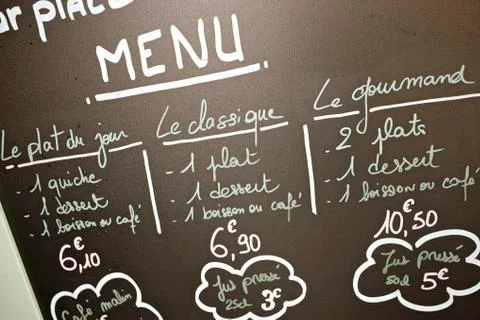 ur PLACE
MENU
Le plat du jour
- 1 quiche
- 1 dessert
- 1 boisson ou café
6€,10
Le classique
- 1 plat
- 1 dessert
- 1 boisson ou café
6€,90
Le gourmand
- 2 plats
- 1 dessert
- 1 boisson ou café
10€,50
Café malin
Jus pressé
25cl 3€
Jus pressé
50cl 5€